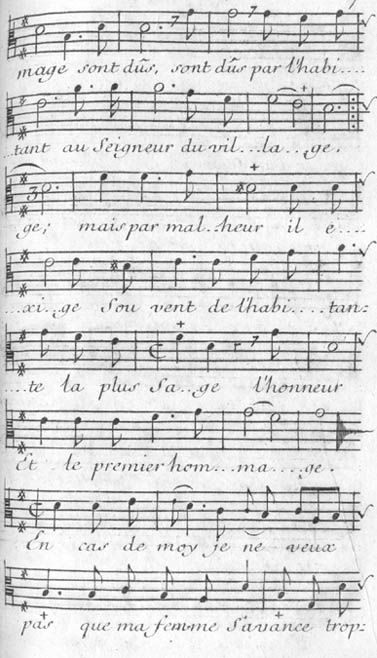 mage sont dûs, sont dûs par l'habi....
...tant au Seigneur du vil...la...ge.
ge; mais par mal..heur il e....
...xi..ge Sou vent de l'habi....tan:
....te la plus Sa...ge l'honneur
Et le premier hom...ma....ge.
En cas de moy je ne veux
pas que ma femme S'avance trop: